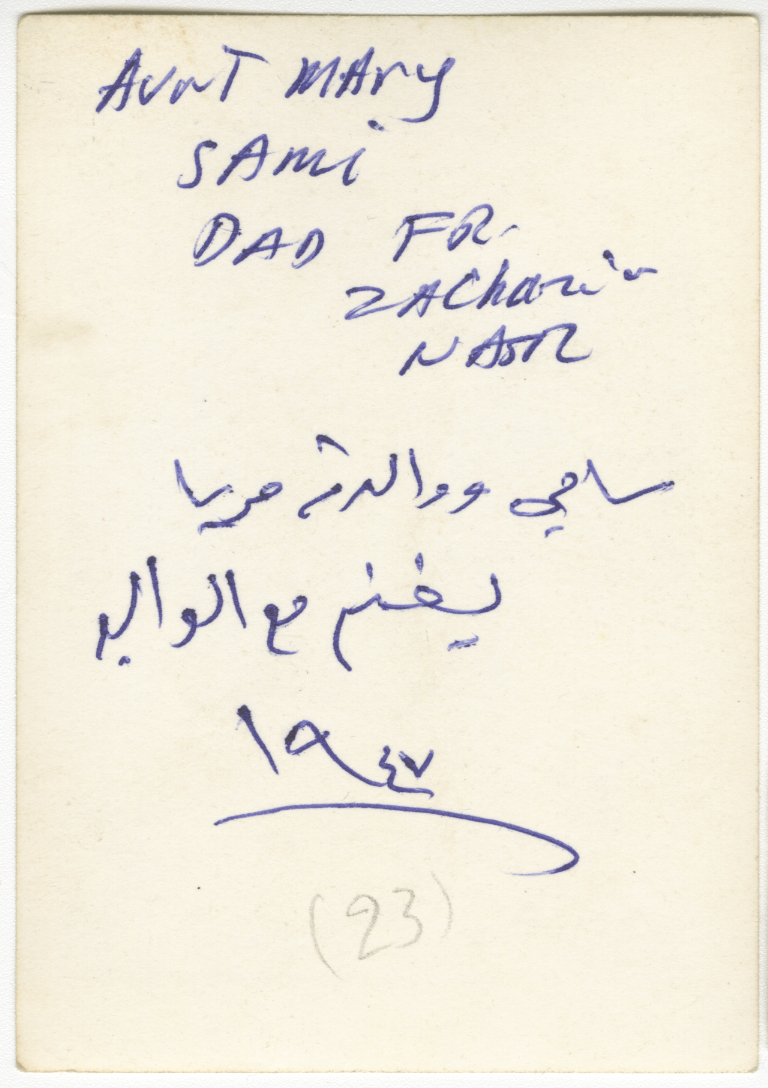 AunT MAry
SAMi
DAD FR.
ZAChari
NASR
سامي ووالدته مريا
يغنم مع الوالد
١٩٤٧
(23)